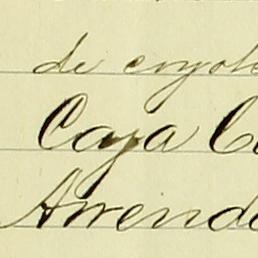 de coyote
Caja C
Arrend